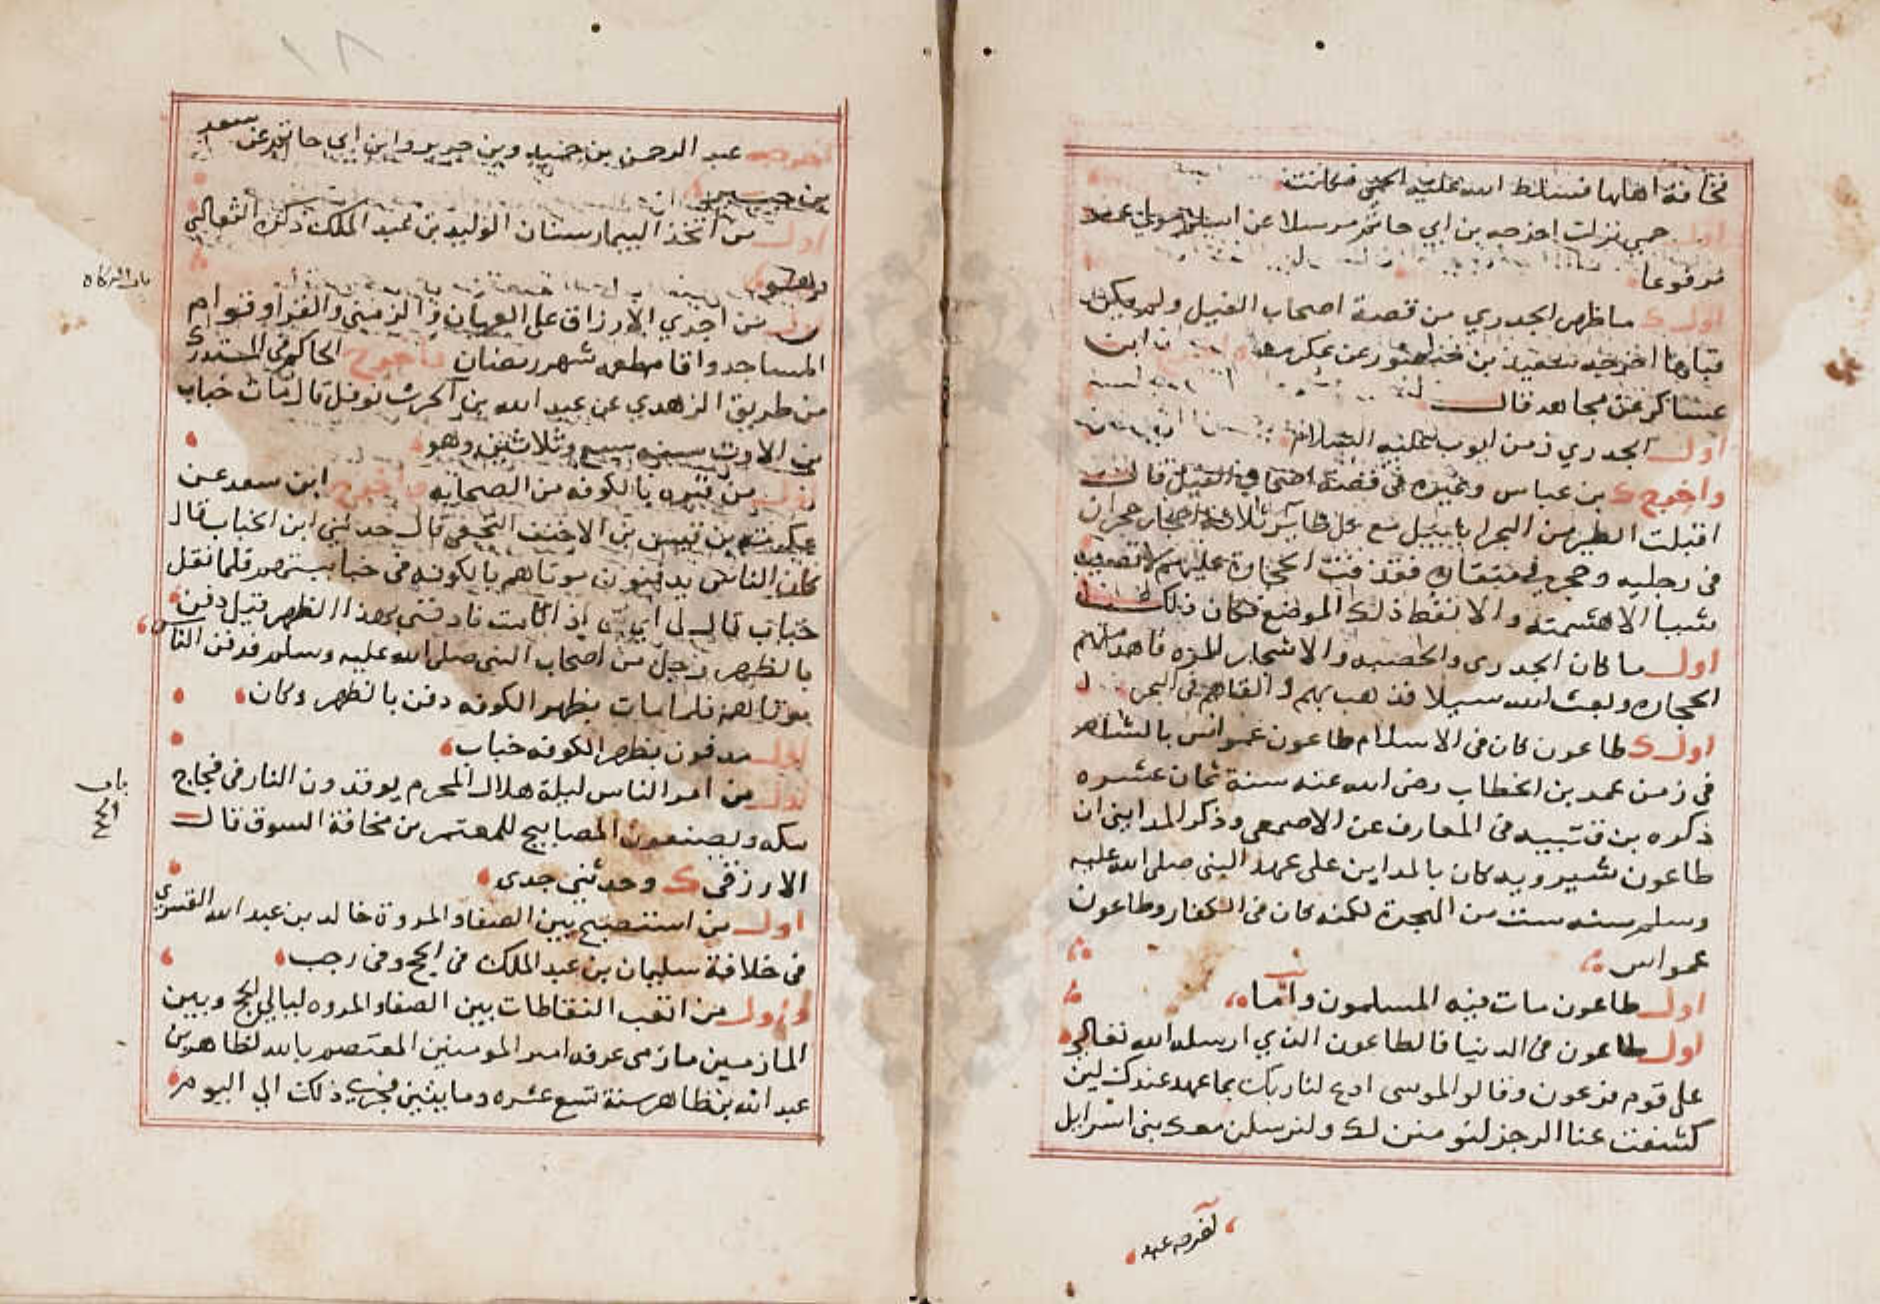 مخافة اهلها فسلط الله عليه الحمى فكانت
اول حمى نزلت اخرجه بن ابي حاتم مرسلا عن اسلم مولى عمر
مرفوعا
اول ما ظهر الجدري من قصة اصحاب الفيل ولم يكن
قبلها اخرجه سعيد بن منصور عن عكرمه واخرج ابن
عساكر عن مجاهد قال
اول الجدري زمن ايوب عليه السلام
واخرج بن عباس وغيره في قصة اصحاب الفيل قال
اقبلت الطير من البحر ابابيل مع كل طاير ثلاثة احجار حجران
في رجليه وحجر في منقاره فقذفت الحجارة عليهم لا تصيب
شيا الا هشمته والا نفط ذلك الموضع فكان ذلك
اول ما كان الجدرى والحصبه والاشجار المره فاهمدتهم
الحجاره وبعث الله سيلا فذهب بهم والقاهم في البحر
اول طاعون كان في الاسلام طاعون عمواس بالشام
في زمن عمر بن الخطاب رضى الله عنه سنة ثمان عشره
ذكره بن قتيبه في المعارف عن الاصمعى وذكر المدايني ان
طاعون شيرويه كان بالمداين على عهد النبى صلى الله عليه
وسلم سنه ست من الهجرة لكنه كان في الكفار وطاعون
عمواس
اول طاعون مات فيه المسلمون واما
اول طاعون في الدنيا فالطاعون الذي ارسله الله تعالى
على قوم فرعون وقالو لموسى ادع لنا ربك بما عهد عندك لين
كشفت عنا الرجز لنومنن لك ولنرسلن معك بنى اسرايل
١٨
اخرجه عبد الرحمن بن حميد وبن جرير وابن ابى حاتم عن سعد
بن جبير
اول من اتخذ البيمارستان الوليد بن عبد الملك ذكره الثعالبي
وهو
اول من اجري الارزاق على العميان والزمنى والقراء وقوام
المساجد واقام طعم شهر رمضان واخرج الحاكم في المستدرك
من طريق الزهدي عن عبد الله بن الحرث نوفل قال مات خباب
بن الارت سنه سبع وثلاثين وهو
اول من قبره بالكوفه من الصحابه واخرج ابن سعد عن
بن قيس بن الاحنف النخعي قال حدثني ابن الخباب قال
كان الناس يدفنون موتاهم بالكوفه في فلما ثقل
خباب قال لى اي بنى اذا انا مت فادفني بهذا الظهر قيل دفن
بالظهر رجل من اصحاب النبى صلى الله عليه وسلم فدفن الناس
موتاهم فلما مات بظهر الكوفه دفن بالظهر وكان
اول مدفون بظهر الكوفه خباب
اول من امر الناس ليلة هلال المحرم يوقدون النار في فجاج
مكه ويصنعون المصابيح للمعتمر من مخافة السوق قال
الارزقي وحدثني جدى
اول من استصبح بين الصفا والمروة خالد بن عبد الله القسري
في خلافة سليمان بن عبد الملك في الحج وفى رجب
واول من اثقب النفاطات بين الصفا والمروه ليالي الحج وبين
المازمين مازمى عرفه امير المومنين المعتصم بالله لظاهر بن
عبد الله بن ظاهر سنة تسع عشره ومايتين فجرى ذلك الي اليوم
باب الزكاه
باب
الحج